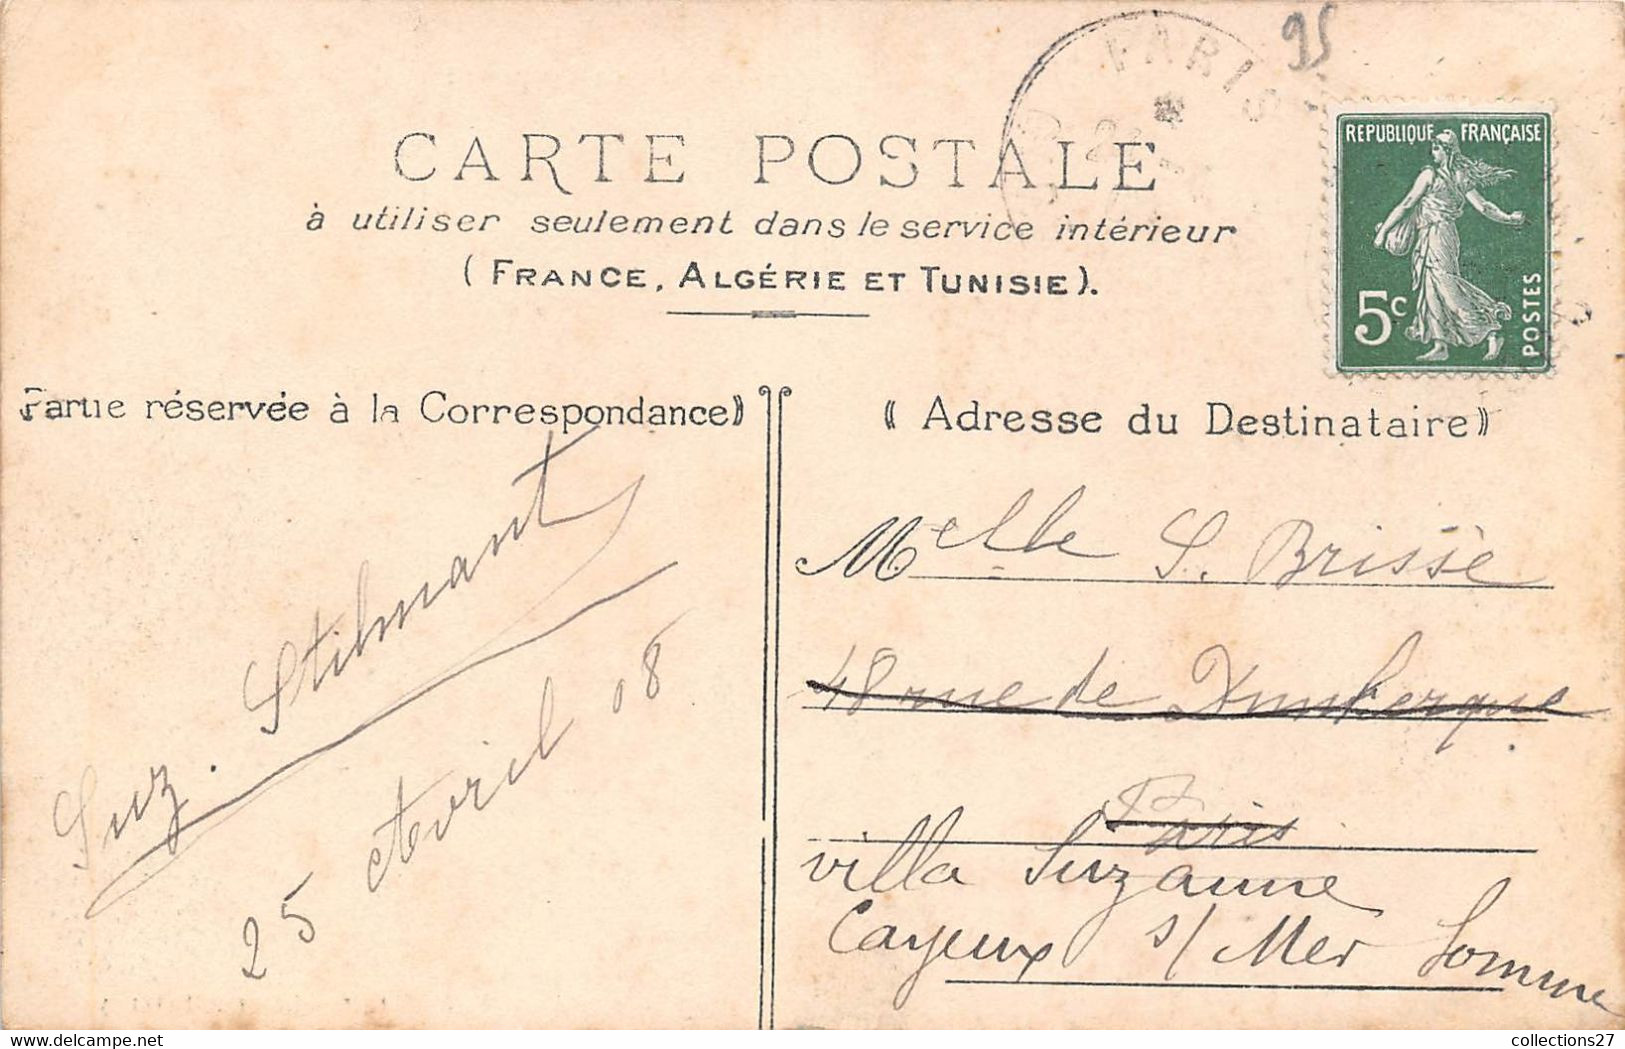 PARIS
95
RÉPUBLIQUE FRANÇAISE
5c
POSTES
CARTE POSTALE
à utiliser seulement dans le service intérieur
(FRANCE, ALGÉRIE ET TUNISIE).
Partie réservée à la Correspondance)
Suz. Stilmant
25 Avril 08
(Adresse du Destinataire)
Melle S. Brisse
48 rue de Dunkerque
Paris
villa Suzanne
Cayeux s/ Mer Somme
delcampe.net
collections27